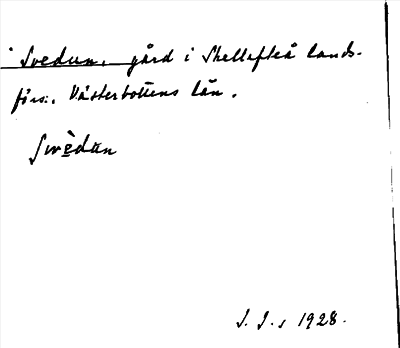 Svedun, gård i Skellefteå lands-
förs., Västerbottens län.
Swèdun
J. J., 1928.